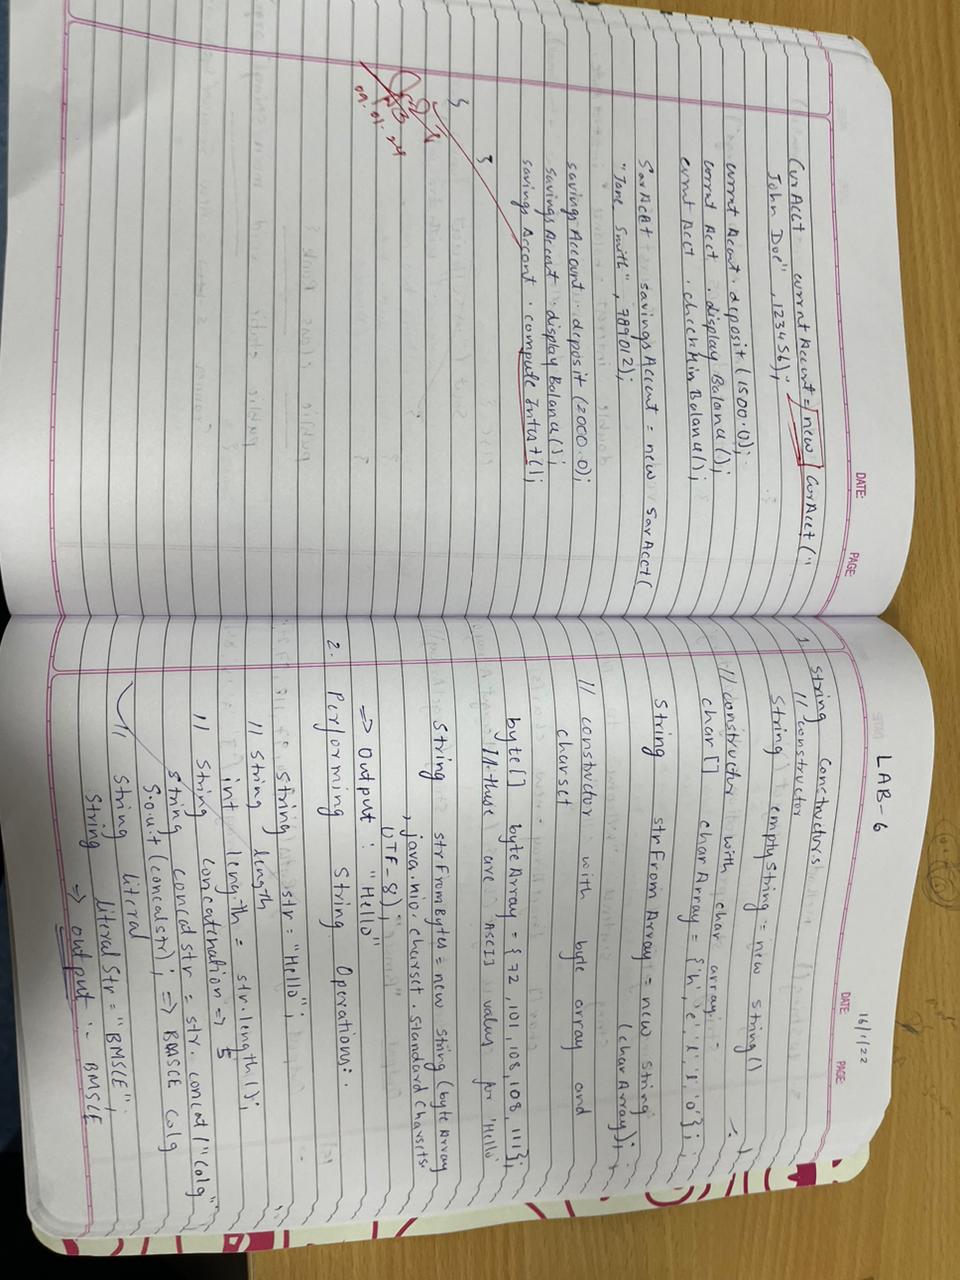 DATE: PAGE:
CurAcct currntAccont = new CurAcct("
John Doe", 123456);
currnt Accnt. deposit(1500.0);
currnt Acct. display Balanu();
currnt Acct. checkMin Balanu();
SavAcct savings Accont = new SavAcct(
"Jane Smith", 789012);
savings Account. deposit (2000.0);
savings Accont. display Balanu();
savings Accont. compute Intrst();
}
}
09.01.24
LAB-6
DATE: 16/1/22 PAGE:
1. String Constructors
// constructor
String emptyString = new String()
// constructor with char array
char[] charArray = {'h','e','l','l','o'};
String strFrom Array = new String
(charArray);
// constructor with byte array and
charset
byte[] byteArray = {72,101,108,108,111};
// these are ASCII values for 'Hello'
String strFromBytes = new String (byteArray
, java.nio.charset.StandardCharsets.
UTF-8);
=> Output: "Hello"
2. Performing String Operations:
String str = "Hello";
// String length
int length = str.length();
// String concatenation => 5
String concat str = str. concat("Colg"
S.o.u.t (concatstr); => BMSCE Colg
// String literal
String literal Str = "BMSCE";
=> output :- BMSCE